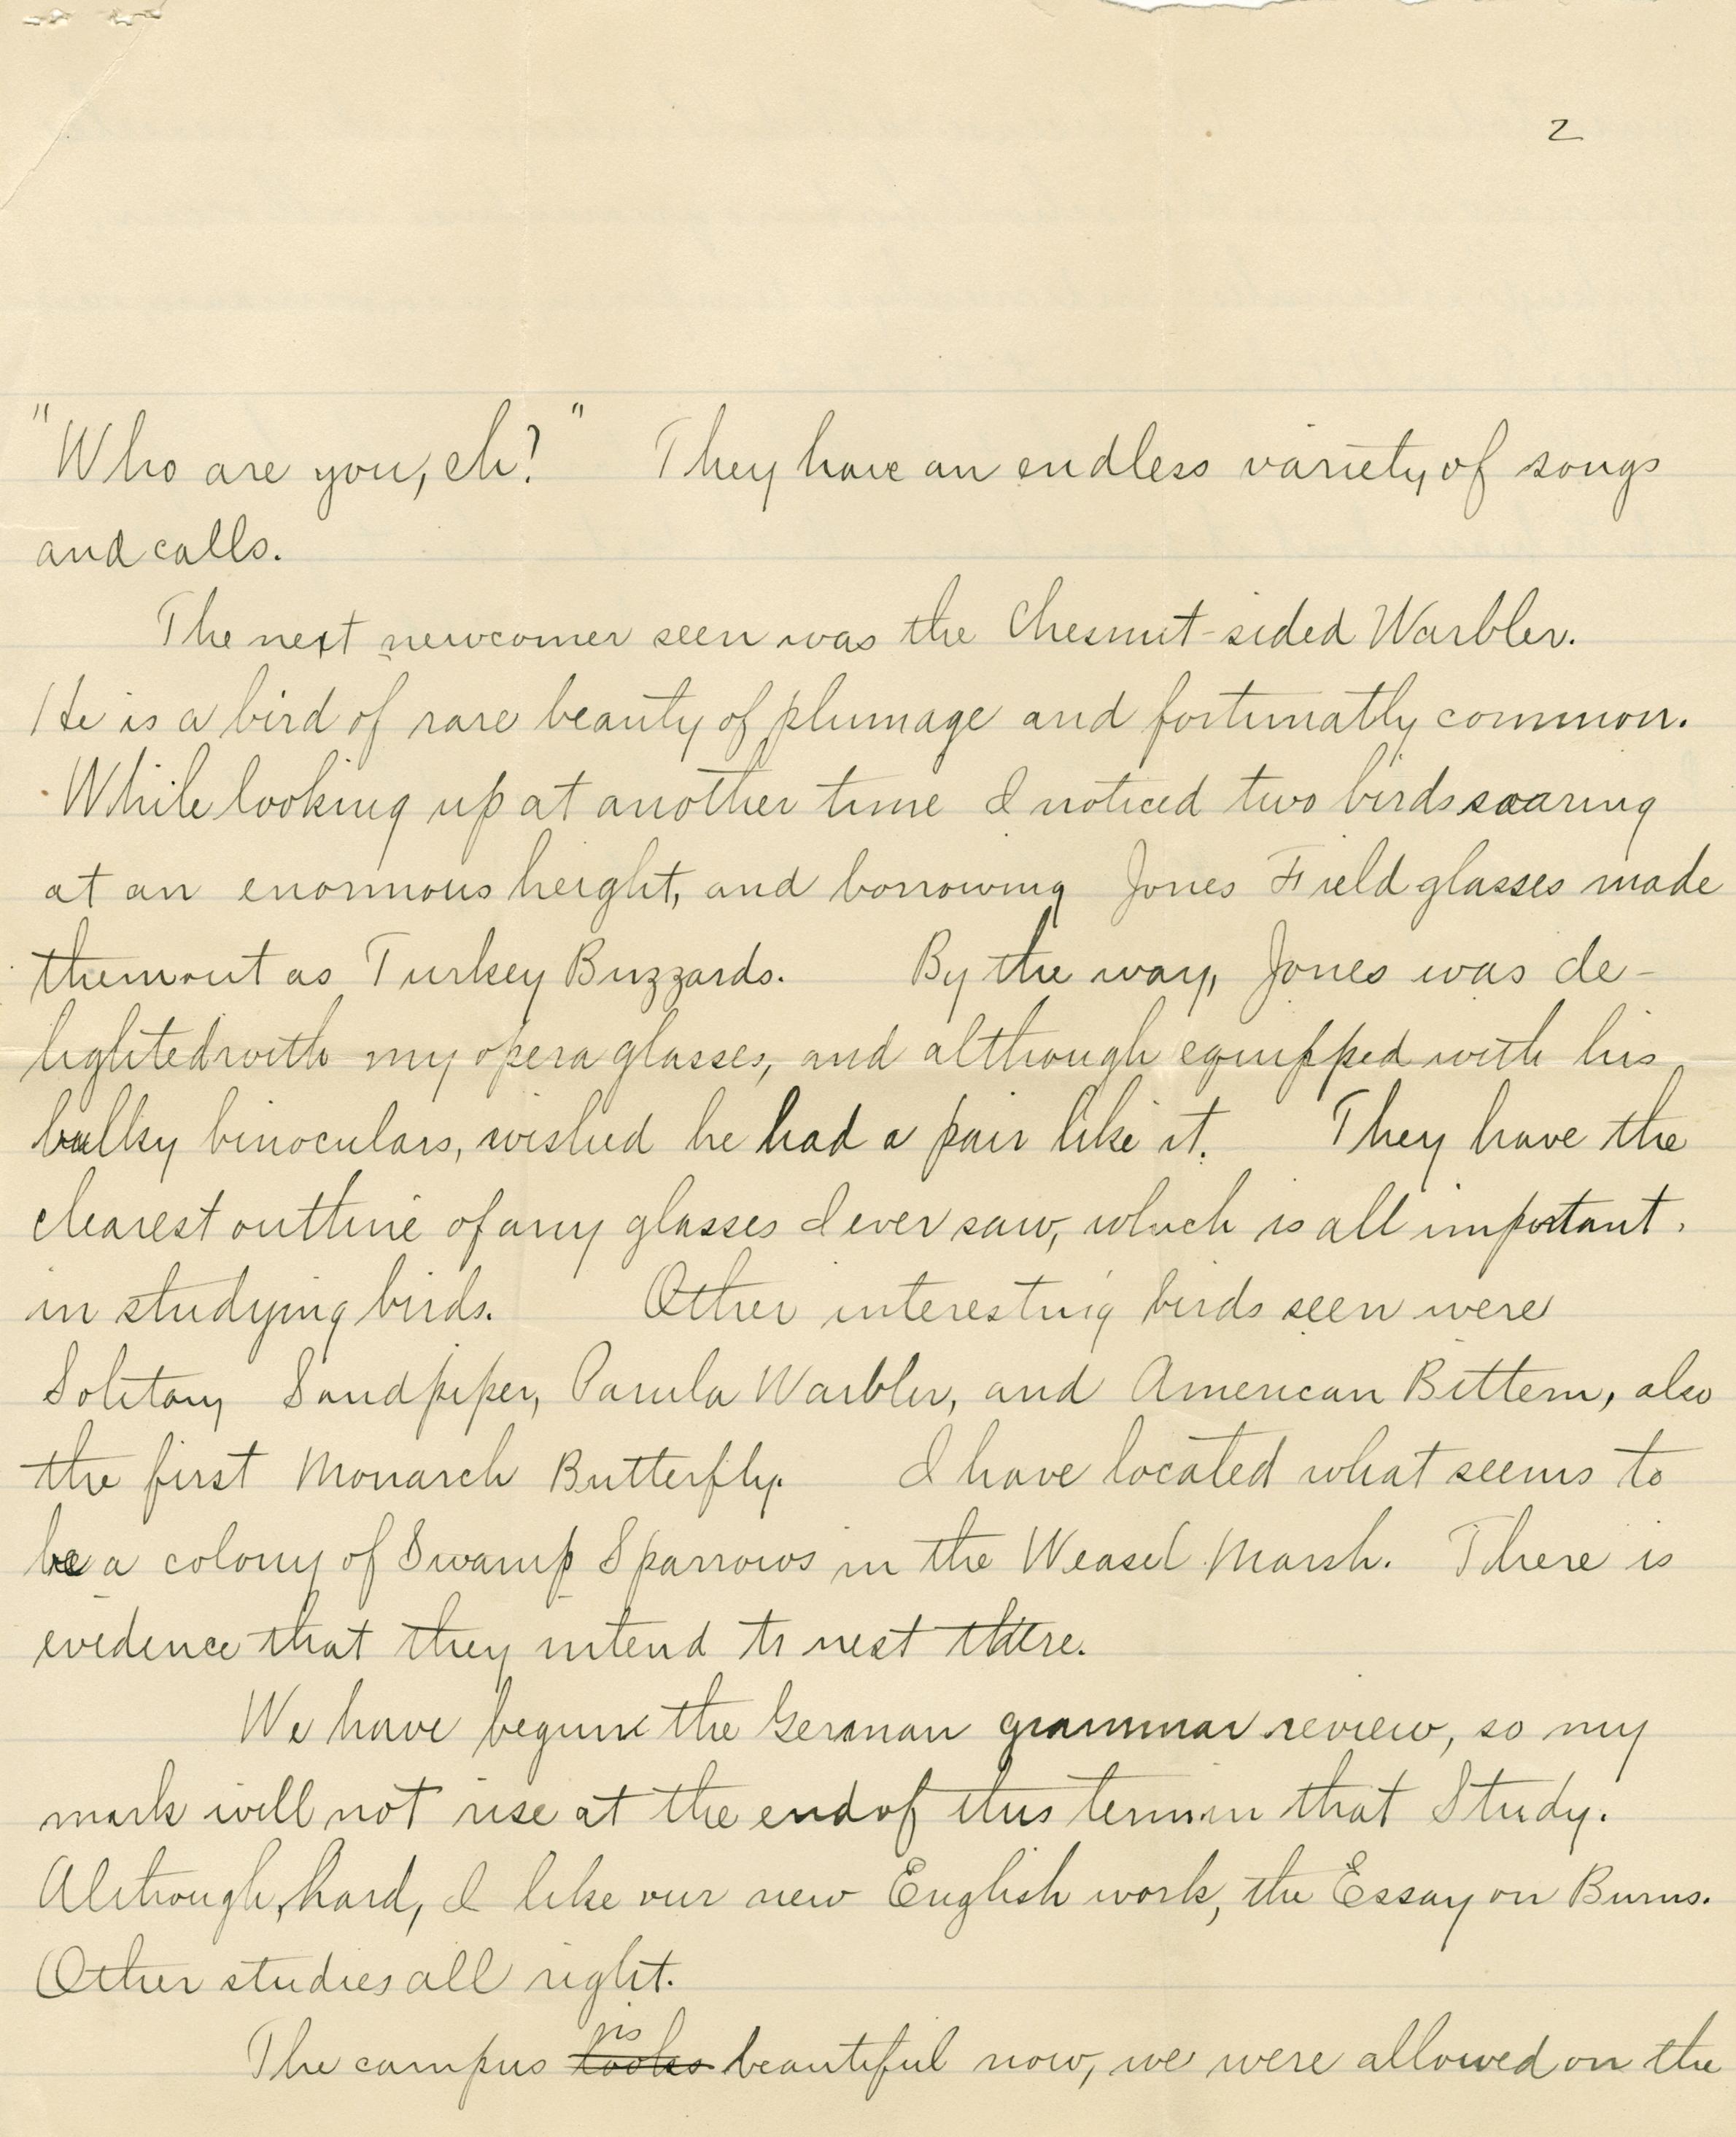 2
"Who are you, eh?" They have an endless variety of songs
and calls.
The next newcomer seen was the Chesnut-sided Warbler.
He is a bird of rare beauty of plumage and fortunatly common.
While looking up at another time I noticed two birds soaring
at an enormous height, and borrowing Jones Field glasses made
them out as Turkey Buzzards. By the way, Jones was de-
lighted with my opera glasses, and although equipped with his
bulky binoculars, wished he had a pair like it. They have the
clearest outline of any glasses I ever saw, which is all important.
in studying birds. Other interesting birds seen were
Solitary Sandpiper, Parula Warbler, and American Bittern, also
the first Monarch Butterfly. I have located what seems to
be a colony of Swamp Sparrows in the Weasel Marsh. There is
evidence that they intend to nest there.
We have begun the German grammar review, so my
mark will not rise at the end of this term in that Study.
Although, hard, I like our new English work, the Essay on Burns.
Other studies all right.
is
The campus looks beautiful now, we were allowed on the